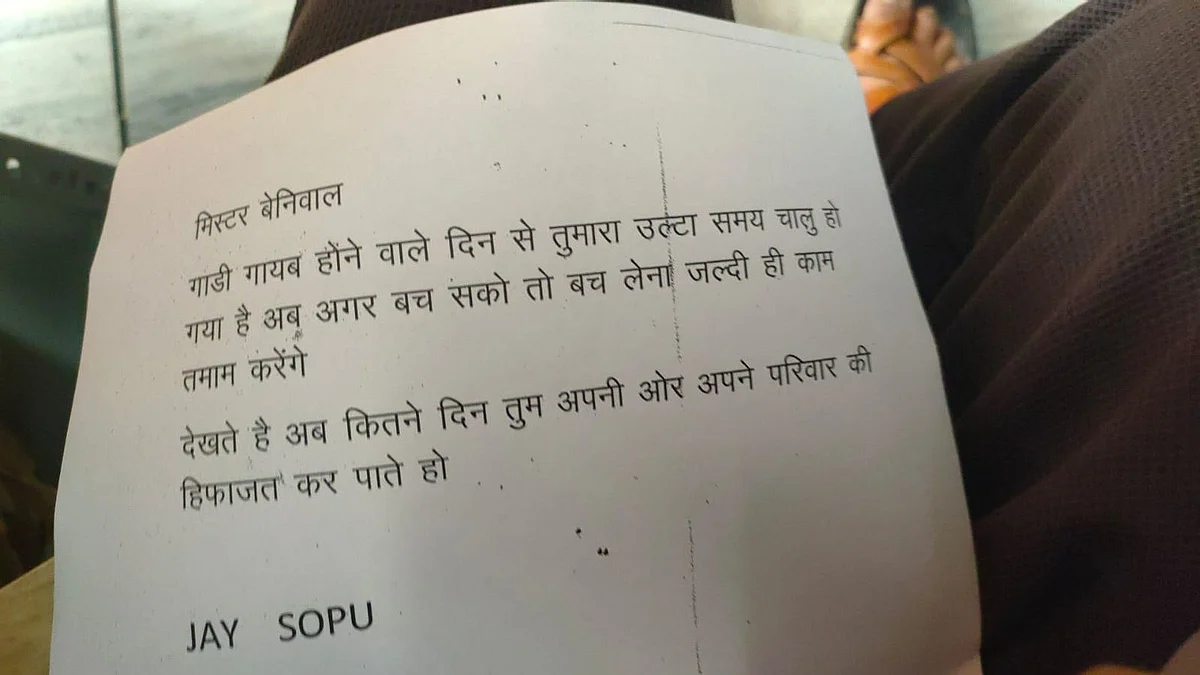 मिस्टर बेनिवाल
गाडी गायब होंने वाले दिन से तुमारा उल्टा समय चालु हो
गया है अब अगर बच सको तो बच लेना जल्दी ही काम
तमाम करेंगे
देखते है अब कितने दिन तुम अपनी ओर अपने परिवार की
हिफाजत कर पाते हो
JAY SOPU